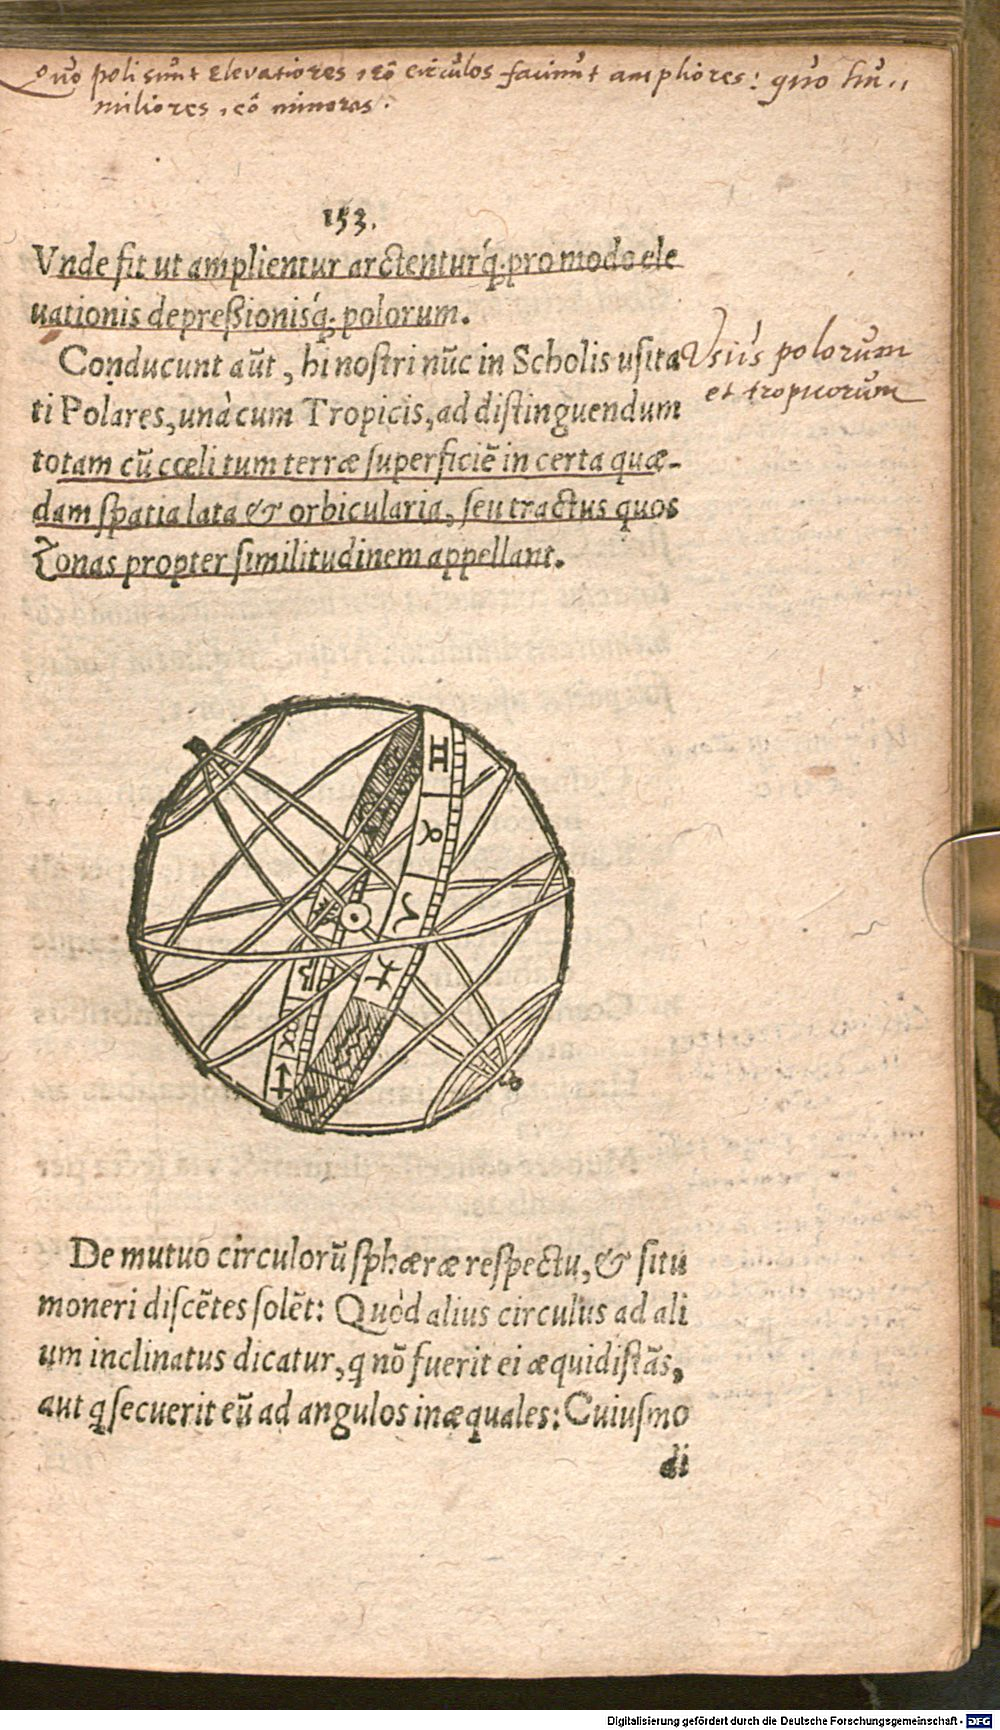 Quo poli sunt elevatiores, eô circulos faciunt ampliores: quo hu„
miliores, eô minores.
153.
Vnde fit ut amplientur arctenturq́; pro modo ele
uationis depreßionisq́; polorum.
Conducunt aūt, hi nostri nūc in Scholis usita
ti Polares, unà cum Tropicis, ad distinguendum
totam cū cœli tum terræ superficiē in certa quæ-
dam spatia lata & orbicularia, seu tractus quos
Zonas propter similitudinem appellant.
Usus polorum
et tropicorum
♊
♉
♈
♓
♏
♐
De mutuo circulorū sphæræ respectu, & situ
moneri discētes solēt: Quòd alius circulus ad ali
um inclinatus dicatur, q nō fuerit ei æquidistās,
aut q secuerit eū ad angulos inæquales: Cuiusmo
di
Digitalisierung gefördert durch die Deutsche Forschungsgemeinschaft - DFG